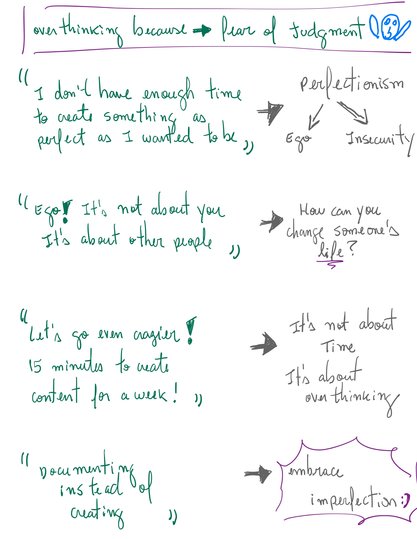 overthinking because → Fear of Judgment
"I don't have enough time
to create something as
perfect as I wanted to be"
→ Perfectionism
Ego Insecurity
"Ego! It's not about you
It's about other people"
→ How can you
change someone's
life?
"Let's go even crazier!
15 minutes to create
content for a week!"
→ It's not about
Time
It's about
overthinking
"Documenting
instead of
creating"
→ embrace
imperfection:)